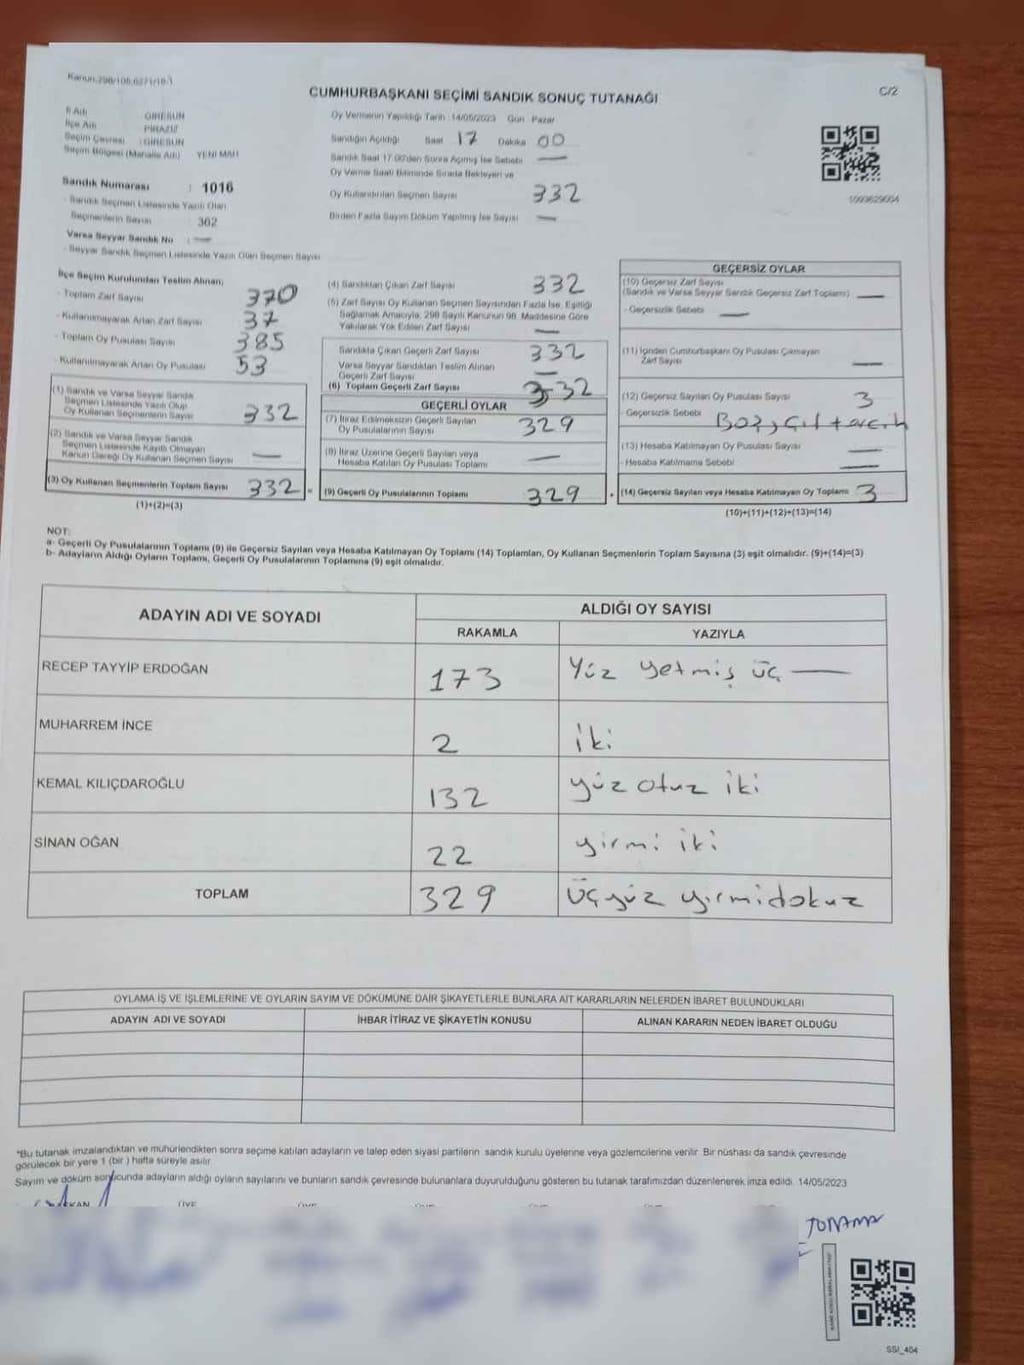 Kanun:298/105,6271/18-1
CUMHURBAŞKANI SEÇİMİ SANDIK SONUÇ TUTANAĞI
C/2
İl Adı : GİRESUN
İlçe Adı : PİRAZİZ
Seçim Çevresi : GİRESUN
Seçim Bölgesi (Mahalle Adı) YENİ MAH
Sandık Numarası : 1016
- Sandık Seçmen Listesinde Yazılı Olan
Seçmenlerin Sayısı : 362
Varsa Seyyar Sandık No : —
- Seyyar Sandık Seçmen Listesinde Yazılı Olan Seçmen Sayısı
Oy Vermenin Yapıldığı Tarih :14/05/2023 Gün Pazar
Sandığın Açıldığı Saat 17 Dakika 00
Sandık Saat 17.00'den Sonra Açılmış İse Sebebi —
Oy Verme Saati Bitiminde Sırada Bekleyen ve
Oy Kullandırılan Seçmen Sayısı 332
Birden Fazla Sayım Döküm Yapılmış İse Sayısı —
1099629004
İlçe Seçim Kurulundan Teslim Alınan;
- Toplam Zarf Sayısı 370
- Kullanılmayarak Artan Zarf Sayısı 37
- Toplam Oy Pusulası Sayısı 385
- Kullanılmayarak Artan Oy Pusulası 53
(1) Sandık ve Varsa Seyyar Sandık
Seçmen Listesinde Yazılı Olup
Oy Kullanan Seçmenlerin Sayısı 332
(2) Sandık ve Varsa Seyyar Sandık
Seçmen Listesinde Kayıtlı Olmayan
Kanun Gereği Oy Kullanan Seçmen Sayısı —
(3) Oy Kullanan Seçmenlerin Toplam Sayısı 332 =
(1)+(2)=(3)
(4) Sandıktan Çıkan Zarf Sayısı 332
(5) Zarf Sayısı Oy Kullanan Seçmen Sayısından Fazla İse, Eşitliği
Sağlamak Amacıyla, 298 Sayılı Kanunun 98. Maddesine Göre
Yakılarak Yok Edilen Zarf Sayısı —
Sandıkta Çıkan Geçerli Zarf Sayısı 332
Varsa Seyyar Sandıktan Teslim Alınan
Geçerli Zarf Sayısı —
(6) Toplam Geçerli Zarf Sayısı 332
GEÇERLİ OYLAR
(7) İtiraz Edilmeksizin Geçerli Sayılan
Oy Pusulalarının Sayısı 329
(8) İtiraz Üzerine Geçerli Sayılan veya
Hesaba Katılan Oy Pusulası Toplamı —
(9) Geçerli Oy Pusulalarının Toplamı 329 +
GEÇERSİZ OYLAR
(10) Geçersiz Zarf Sayısı
(Sandık ve Varsa Seyyar Sandık Geçersiz Zarf Toplamı) —
- Geçersizlik Sebebi —
(11) İçinden Cumhurbaşkanı Oy Pusulası Çıkmayan
Zarf Sayısı —
(12) Geçersiz Sayılan Oy Pusulası Sayısı 3
- Geçersizlik Sebebi Boş, çift tercih
(13) Hesaba Katılmayan Oy Pusulası Sayısı —
- Hesaba Katılmama Sebebi —
(14) Geçersiz Sayılan veya Hesaba Katılmayan Oy Toplamı 3
(10)+(11)+(12)+(13)=(14)
NOT:
a- Geçerli Oy Pusulalarının Toplamı (9) ile Geçersiz Sayılan veya Hesaba Katılmayan Oy Toplamı (14) Toplamları, Oy Kullanan Seçmenlerin Toplam Sayısına (3) eşit olmalıdır. (9)+(14)=(3)
b- Adayların Aldığı Oyların Toplamı, Geçerli Oy Pusulalarının Toplamına (9) eşit olmalıdır.
ADAYIN ADI VE SOYADI
ALDIĞI OY SAYISI
RAKAMLA YAZIYLA
RECEP TAYYİP ERDOĞAN 173 Yüz yetmiş üç —
MUHARREM İNCE 2 iki
KEMAL KILIÇDAROĞLU 132 yüz otuz iki
SİNAN OĞAN 22 yirmi iki
TOPLAM 329 üçyüz yirmidokuz
OYLAMA İŞ VE İŞLEMLERİNE VE OYLARIN SAYIM VE DÖKÜMÜNE DAİR ŞİKAYETLERLE BUNLARA AİT KARARLARIN NELERDEN İBARET BULUNDUKLARI
ADAYIN ADI VE SOYADI İHBAR İTİRAZ VE ŞİKAYETİN KONUSU ALINAN KARARIN NEDEN İBARET OLDUĞU
*Bu tutanak imzalandıktan ve mühürlendikten sonra seçime katılan adayların ve talep eden siyasi partilerin sandık kurulu üyelerine veya gözlemcilerine verilir. Bir nüshası da sandık çevresinde
görülecek bir yere 1 (bir ) hafta süreyle asılır.
Sayım ve döküm sonucunda adayların aldığı oyların sayılarını ve bunların sandık çevresinde bulunanlara duyurulduğunu gösteren bu tutanak tarafımızdan düzenlenerek imza edildi. 14/05/2023
SSI_404